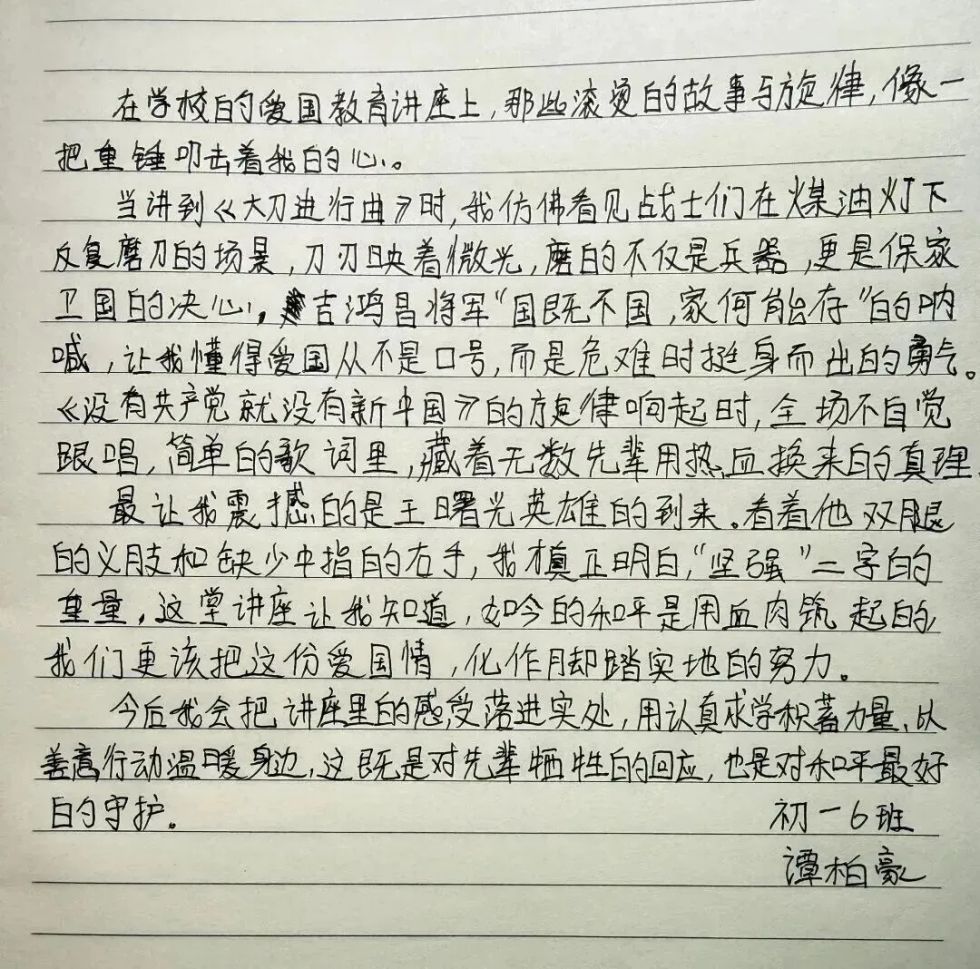 在学校的爱国教育讲座上,那些滚烫的故事与旋律,像一
把重锤叩击着我的心。
当讲到《大刀进行曲》时,我仿佛看见战士们在煤油灯下
反复磨刀的场景,刀刃映着微光,磨的不仅是兵器,更是保家
卫国的决心。吉鸿昌将军“国既不国,家何能存”的呐
喊,让我懂得爱国从不是口号,而是危难时挺身而出的勇气。
《没有共产党就没有新中国》的旋律响起时,全场不自觉
跟唱,简单的歌词里,藏着无数先辈用热血换来的真理.
最让我震撼的是王曙光英雄的到来。看着他双腿
的义肢和缺少中指的右手,我才真正明白,“坚强”二字的
重量,这堂讲座让我知道,如今的和平是用血肉筑起的,
我们更该把这份爱国情,化作脚踏实地的努力。
今后我会把讲座里的感受落进实处,用认真求学积蓄力量、以
善意行动温暖身边,这既是对先辈牺牲的回应,也是对和平最好
的守护。
初一6班
谭柏豪